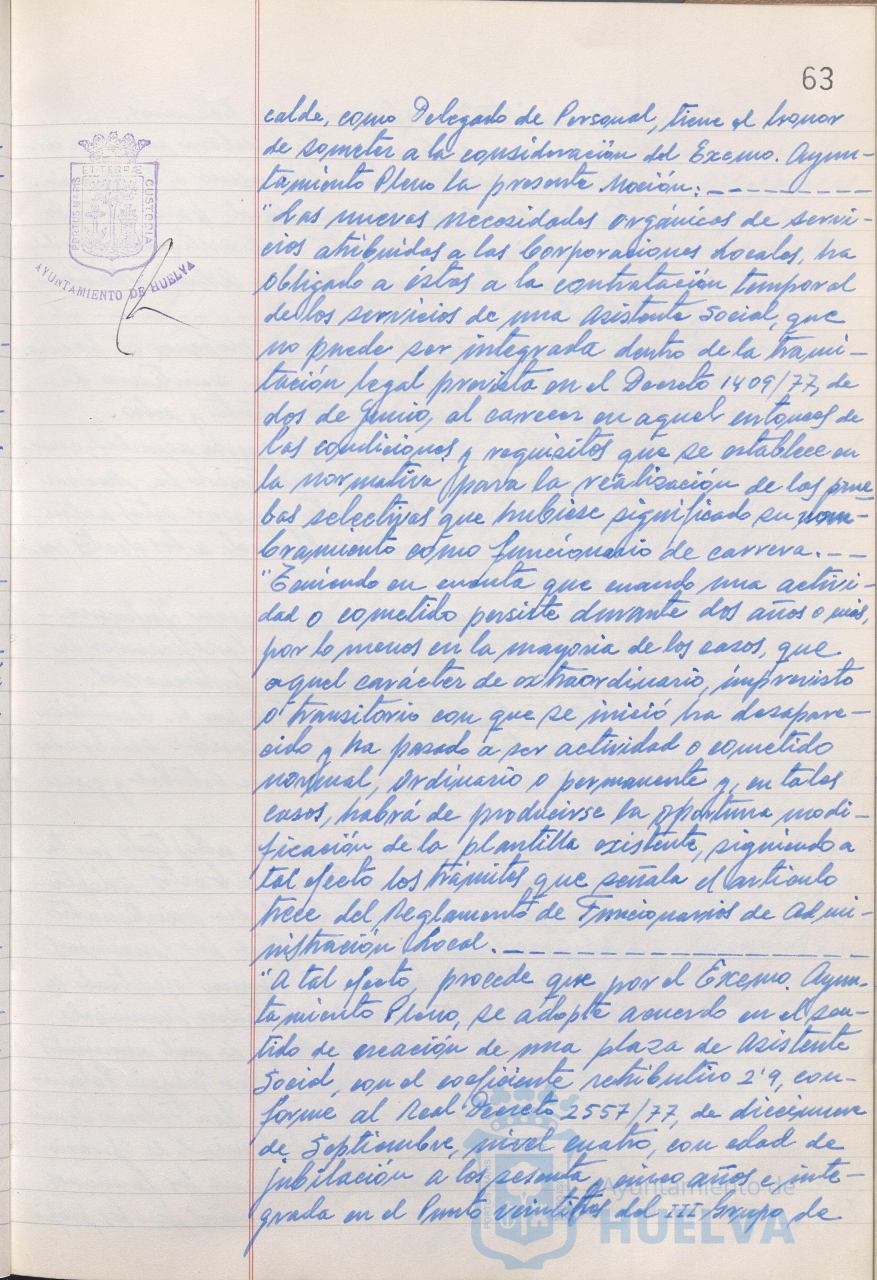 63
calde, como Delegado de Personal, tiene el honor
de someter a la consideración del Excmo. Ayun-
tamiento Pleno la presente Moción:
"Las nuevas necesidades orgánicas de servi-
cios atribuidas a las Corporaciones Locales, ha
obligado a éstas a la contratación temporal
de los servicios de una Asistente Social, que
no puede ser integrada dentro de la trami-
tación legal prevista en el Decreto 1409/77, de
dos de Junio, al carecer en aquel entonces de
las condiciones y requisitos que se establece en
la normativa para la realización de las prue
bas selectivas que hubiese significado su nom-
bramiento como funcionario de carrera.--
"Teniendo en cuenta que cuando una activi-
dad o cometido persiste durante dos años o más,
por lo menos en la mayoria de los casos, que
aquel carácter de extraordinario, imprevisto
o transitorio con que se inició ha desapare-
cido y ha pasado a ser actividad o cometido
normal, ordinario o permanente y, en tales
casos, habrá de producirse la oportuna modi-
ficación de la plantilla existente, siguiendo a
tal efecto los trámites que señala el artículo
trece del Reglamento de Funcionarios de Admi-
nistración Local.
"A tal efecto, procede que por el Excmo. Ayun-
tamiento Pleno, se adopte acuerdo en el sen-
tido de creación de una plaza de Asistente
Social, con el coeficiente retributivo 2'9, con-
forme al Real Decreto 2557/77, de diecinueve
de Septiembre, nivel cuatro, con edad de
jubilación a los sesenta y cinco años e inte-
grada en el Punto veintitres del III Grupo de
PORTUS MARIS
ET TERRÆ
CUSTODIA
AYUNTAMIENTO DE HUELVA
Ayuntamiento de
HUELVA